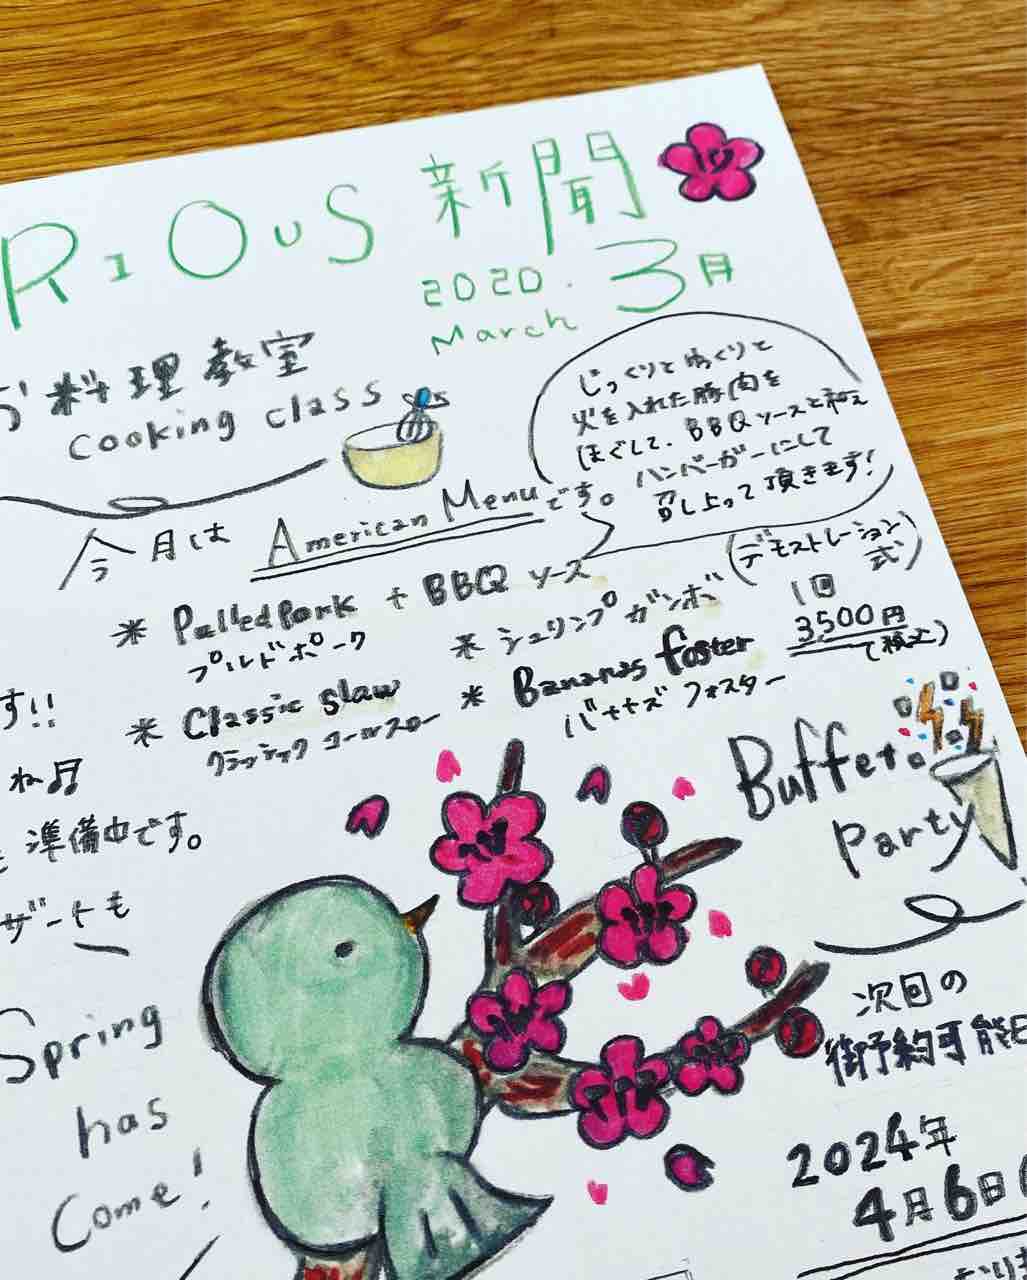 RIOUS 新聞
2020. 3月
March
料理教室
cooking class
じっくりとゆっくりと
火を入れた豚肉を
ほぐして、BBQソースと和え
ハンバーガーにして
召し上って頂きます!
今月は American Menuです。
(デモストレーション式)
* Pulled Pork + BBQ ソース
プルドポーク
* シュリンプガンボ
1回
3,500円
(税込)
* Classic slaw
クラシック コールスロー
* Bananas foster
バナナズ フォスター
す!!
ね♫
準備中です。
ザートも
Buffet
Party
Spring
has
Come!
次回の
御予約可能日
2024年
4月6日(